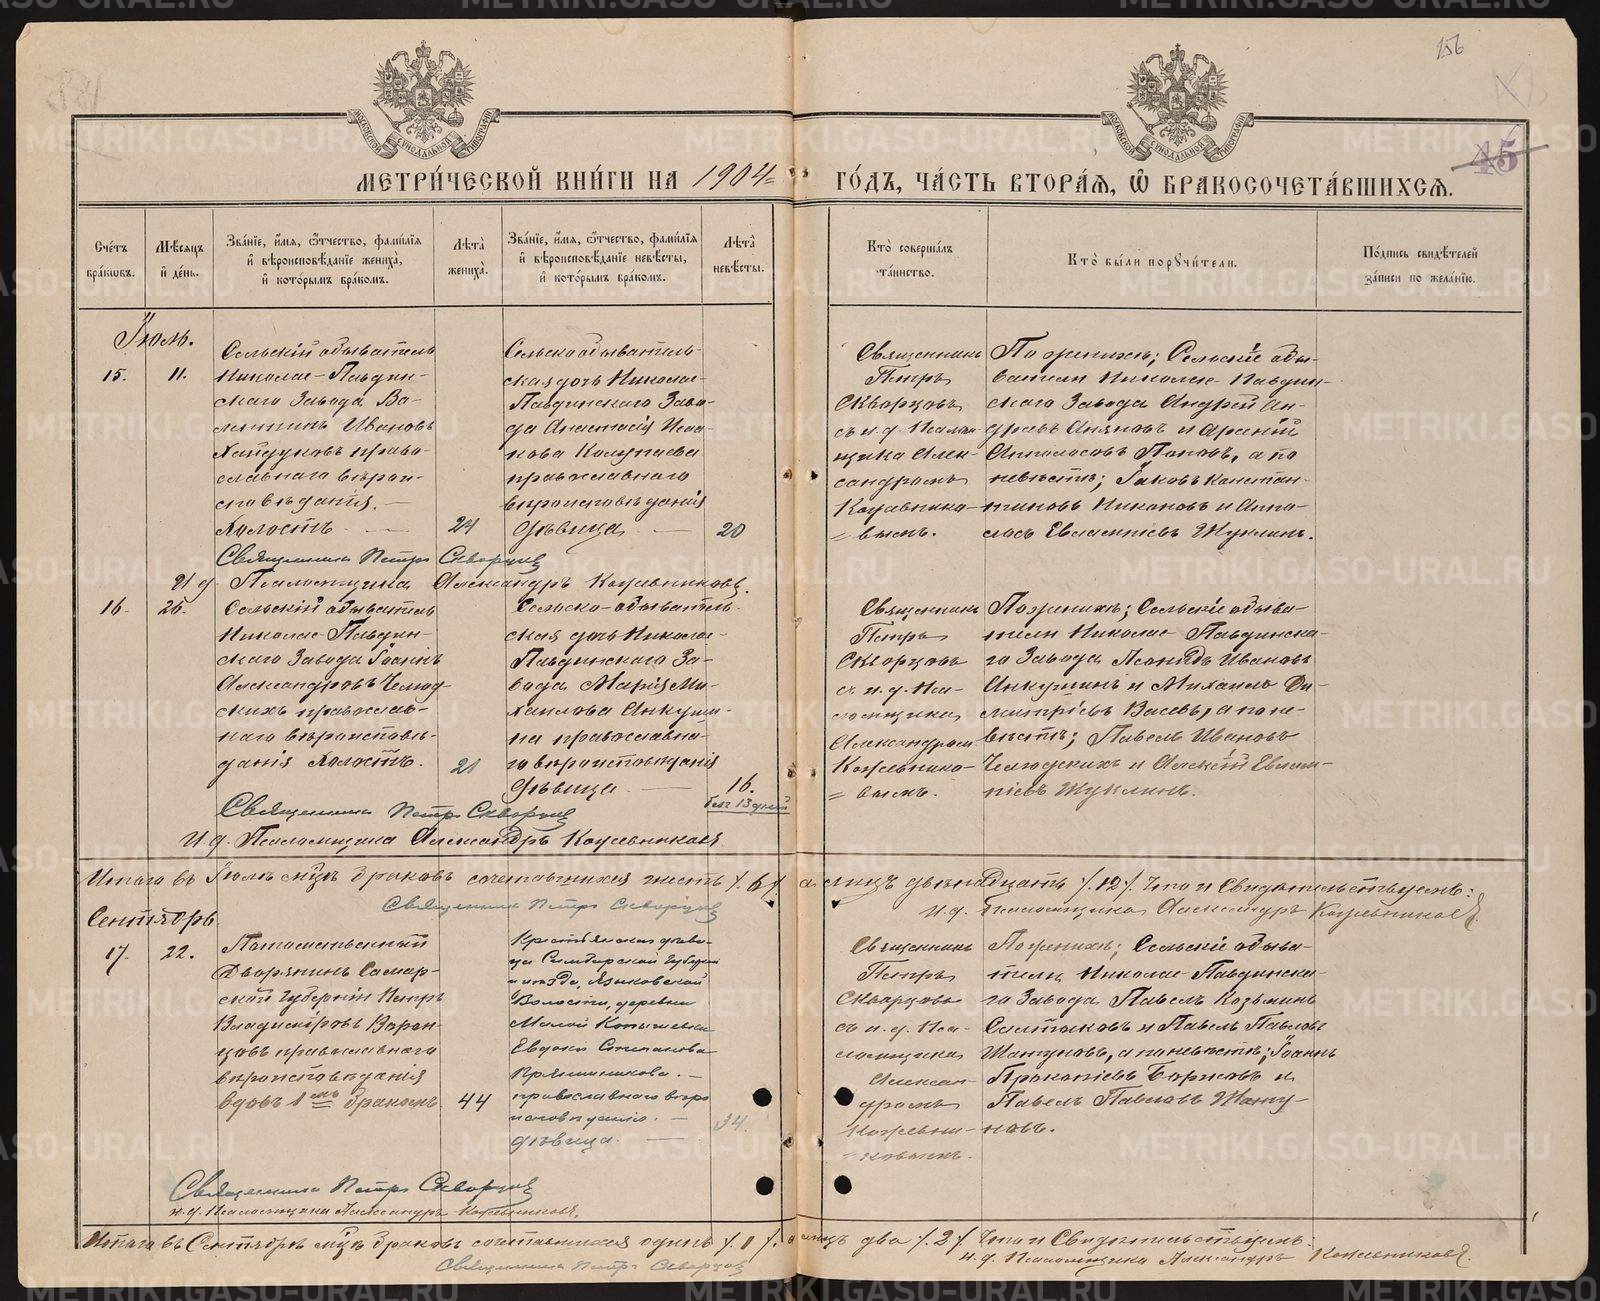 156
45
МОСКОВСКОЙ СѴНОДАЛЬНОЙ ТИПОГРАФІИ
МОСКОВСКОЙ СѴНОДАЛЬНОЙ ТИПОГРАФІИ
МЕТРИ́ЧЕСКОЙ КНИ́ГИ НА 1904 ГО́ДЪ, ЧА́СТЬ ВТОРА́Ѧ, Ѽ БРАКОСОЧЕТА́ВШИХСѦ.
Сче́тъ бра́кѡвъ.
Мѣ́сѧцъ и҆ де́нь.
Зва́нїе, и҆́мѧ, ѻ҆́тчество, фами́лїѧ и҆ вѣроисповѣ́данїе жениха̀, и҆ кото́рымъ бра́комъ.
Лѣ́та жениха̀.
Зва́нїе, и҆́мѧ, ѻ҆́тчество, фами́лїѧ и҆ вѣроисповѣ́данїе невѣ́сты, и҆ кото́рымъ бра́комъ.
Лѣ́та невѣ́сты.
Кто̀ соверша́лъ та́инство.
Кто̀ бы́ли порꙋчи́тели.
По́дпись свидѣ́телей за́писи по жела́нїю.
Іюль.
15. 11.
Сельскій обыватель
Николае-Павдин-
скаго Завода Ва-
лентинъ Ивановъ
Хайдуковъ право-
славнаго вѣрои-
сповѣданія. —
Холостъ —
24
Сельскообыватель-
ская дочь Николае-
Павдинскаго Заво-
да Анастасія Иса-
кова Колупаева
православнаго
вѣроисповѣданія
дѣвица —
20
Священникъ
Петръ
Скворцовъ
съ и. д. Псалом-
щика Алек-
сандромъ
Кожевнико-
= вымъ.
По женихѣ; Сельскіе обы-
ватели Николае-Павдин-
скаго Завода Андрей Ан-
дреевъ и Арсеній
Поповъ, а по
невѣстѣ; Іаковъ Констан-
тиновъ Никоновъ и Аппо-
лосъ Евлампіевъ Жуклинъ.
Священникъ Петръ Скворцовъ
И д Псаломщика Александръ Кожевниковъ.
16. 26.
Сельскій обыватель
Николае-Павдин-
скаго Завода Іоаннъ
Александровъ Челюд-
скихъ православ-
наго вѣроисповѣ-
данія Холостъ.
21
Сельско-обыватель-
ская дочь Николае-
Павдинскаго За-
вода Марія Ми-
хаилова Анкуши-
на православна-
го вѣроисповѣданія
дѣвица —
16.
без 13 дней
Священникъ
Петръ
Скворцовъ
съ и. д. Пса-
ломщика
Александром
Кожевнико-
= вымъ.
По женихѣ; Сельскіе обыва-
тели Николае-Павдинска-
го Завода Леонидъ Ивановъ
Анкушинъ и Михаилъ Ди-
митріевъ Васевъ, а по не-
вѣстѣ; Павелъ Ивановъ
Челюдскихъ и Алексій Евлам-
піевъ Жуклинъ.
Священникъ Петръ Скворцовъ
И. д. Псаломщика Александръ Кожевниковъ
Итого въ Іюлѣ мцѣ браковъ сочетавшихся шесть /. 6 /. а лицъ двѣнадцать /. 12 /. Что и Свидѣтельствуемъ:
Священникъ Петръ Скворцовъ
И. д. Псаломщика Александръ Кожевниковъ.
Сентябрь
17. 22.
Потомственный
Дворянинъ Самар-
ской Губерніи Петръ
Владиміровъ Ворон-
цовъ православнаго
вѣроисповѣданія
вдовъ 1мъ бракомъ
44
Крестьянская дѣви-
ца Симбирской Губерніи
и уѣзда, Языковской
Волости, деревни
Малой
Евдокія Степанова
православнаго вѣро
исповѣданія. —
дѣвица —
34.
Священникъ
Петръ
Скворцовъ
съ и. д. Пса-
ломщика
Алексан-
дромъ
Кожевни-
= ковымъ.
По женихѣ; Сельскіе обыва-
тели Николае-Павдинска-
го Завода Павелъ Козьминъ
Салтыковъ и Павелъ Павловъ
Шатуновъ, а по невѣстѣ; Іоаннъ
Прокопіевъ Борисовъ и
Павелъ Павловъ Шату-
новъ.
Священникъ Петръ Скворцовъ
и. д. Псаломщика Александръ Кожевниковъ.
Итого въ Сентябрѣ мцѣ браковъ сочетавшихся одинъ /. 1 /. а лицъ два /. 2 /. Что и Свидѣтельствуемъ:
Священникъ Петръ Скворцовъ
И. д. Псаломщика Александръ Кожевниковъ.
METRIKI.GASO-URAL.RU